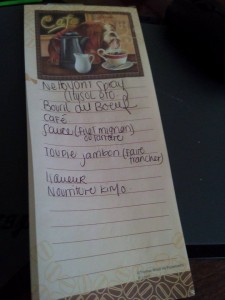 Café
Nettoyant Spray
(Lysol etc)
Bouil du Boeuf
CAFÉ
Sauce (filet mignon)
Toupie jambon (faire
trancher)
liqueur
Nourriture Kimo